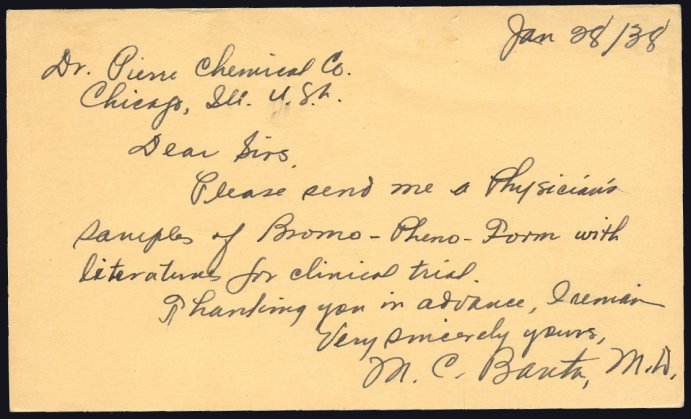 Jan 28/38
Dr. Pierre Chemical Co.
Chicago, Ill. U.S.A.
Dear Sirs,
Please send me a Physician's
samples of Bromo-Pheno-Form with
literatures for clinical trial.
Thanking you in advance, I remain
Very sincerely yours,
M. C. Banta, M.D.